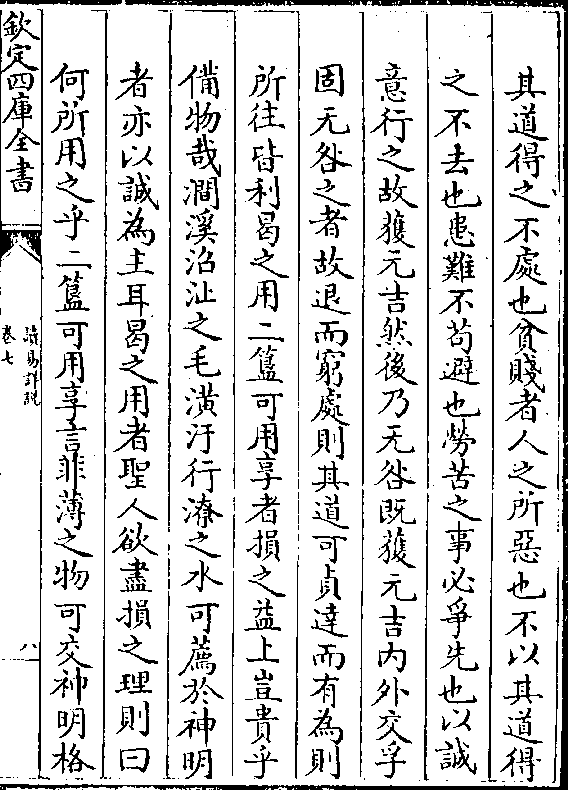 其道得之不處也貧賤者人之所惡也不以其道得
之不去也患難不苟避也勞苦之事必爭先也以誠
意行之故獲元吉然後乃无咎既獲元吉内外交孚
固无咎之者故退而窮處則其道可貞達而有為則
所往皆利曷之用二簋可用享者損之益上豈貴乎
備物哉澗溪沼沚之毛潢汙行潦之水可薦於神明
者亦以誠為主耳曷之用者聖人欲盡損之理則曰
何所用之乎二簋可用享言菲薄之物可交神明格
欽定四庫全書
讀易詳說
卷七
八